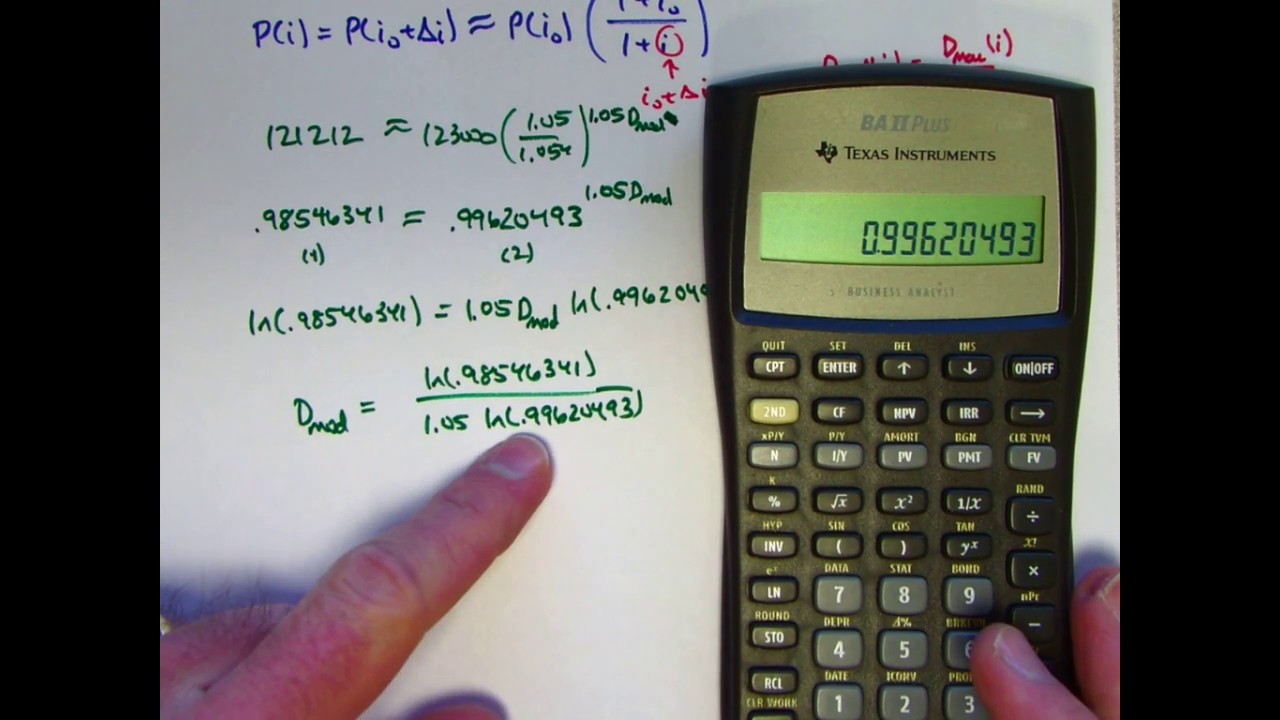 P(i) = P(i₀+Δi) ≈ P(i₀) (1+i₀ / 1+i)
↑
i₀+Δi
D_mac(i)
121212 ≈ 123000 (1.05 / 1.054)^1.05D_mod
.98546341 = .99620493^1.05D_mod
(1) (2)
ln(.98546341) = 1.05D_mod ln(.9962049
D_mod = ln(.98546341) / 1.05 ln(.99620493)
BA II PLUS
TEXAS INSTRUMENTS
0.99620493
BUSINESS ANALYST
QUIT SET DEL INS
CPT ENTER ↑ ↓ ON|OFF
2ND CF NPV IRR →
xP/Y P/Y AMORT BGN CLR TVM
N I/Y PV PMT FV
K RAND
% √x x² 1/x ÷
HYP SIN COS TAN x!
INV ( ) yˣ ×
eˣ DATA STAT BOND nPr
LN 7 8 9 −
ROUND DEPR Δ% BRKEVN
STO 4 5 6
DATE ICONV
RCL 1 2 3
CLR WORK